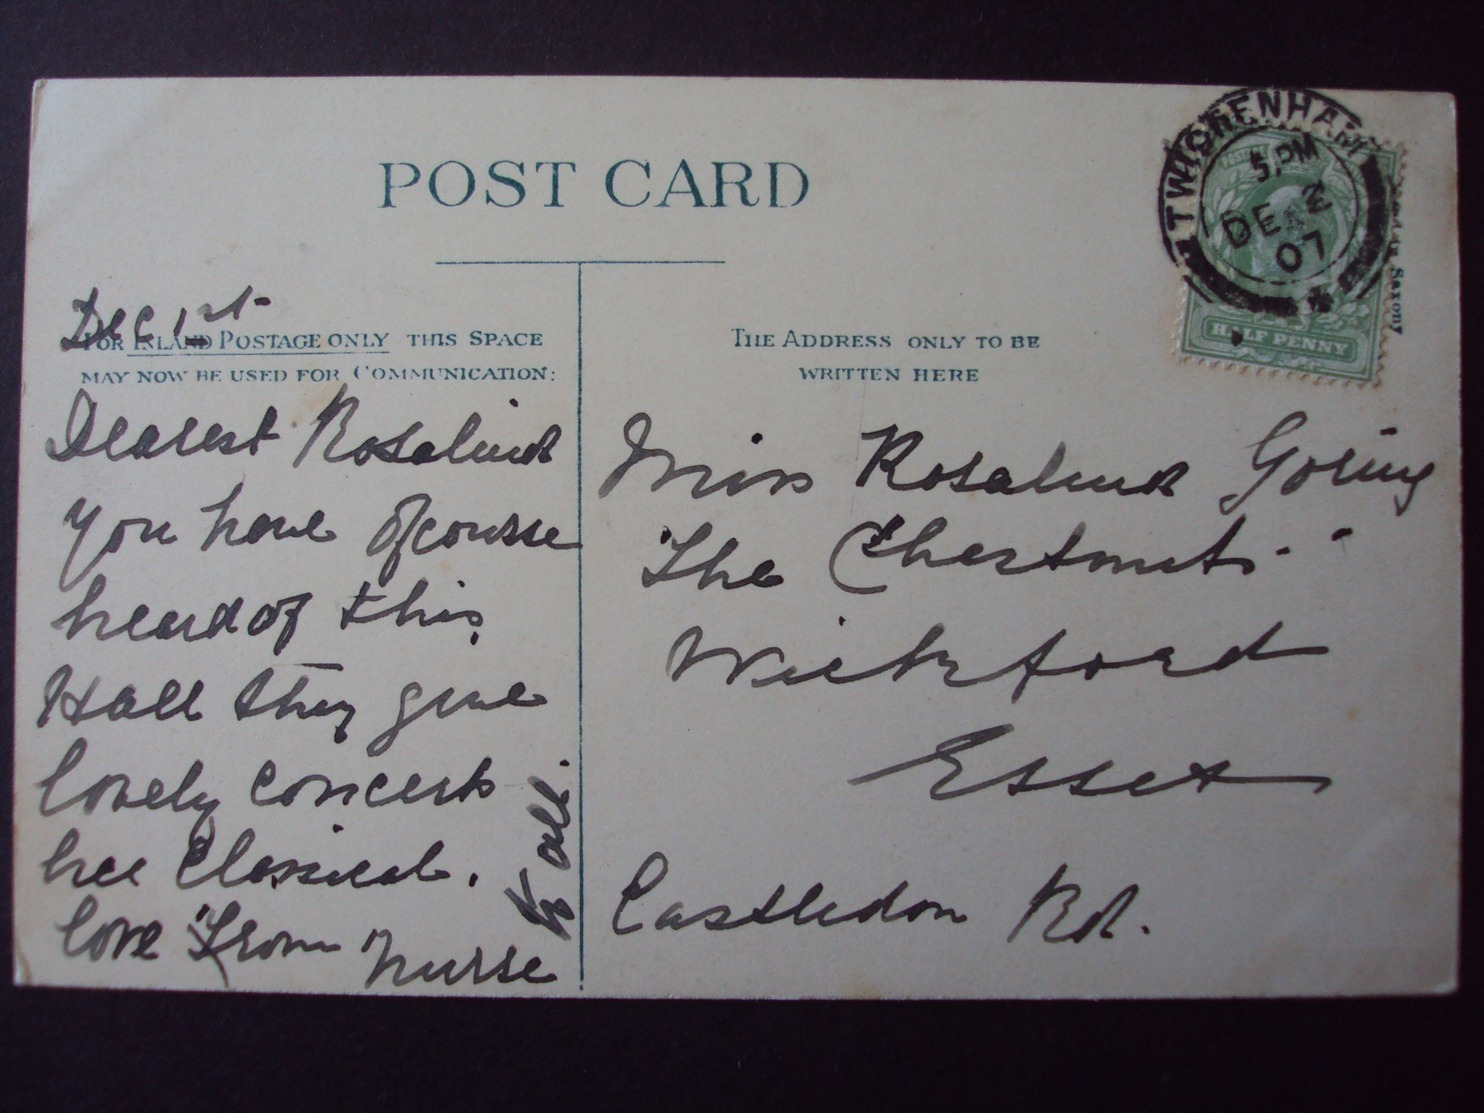 POST CARD
TWICKENHAM
5 PM
DE 2
07
POSTAGE
HALF PENNY
Saxony
Dec 1st
FOR INLAND POSTAGE ONLY THIS SPACE
MAY NOW BE USED FOR COMMUNICATION:
Dearest Rosalind
You have ofcourse
heard of this
Hall they give
lovely concerts
here Classical.
love from Nurse
to all.
THE ADDRESS ONLY TO BE
WRITTEN HERE
Miss Rosalind Goring
"The Chestnuts"
Wickford
Essex
Castledon Rd.